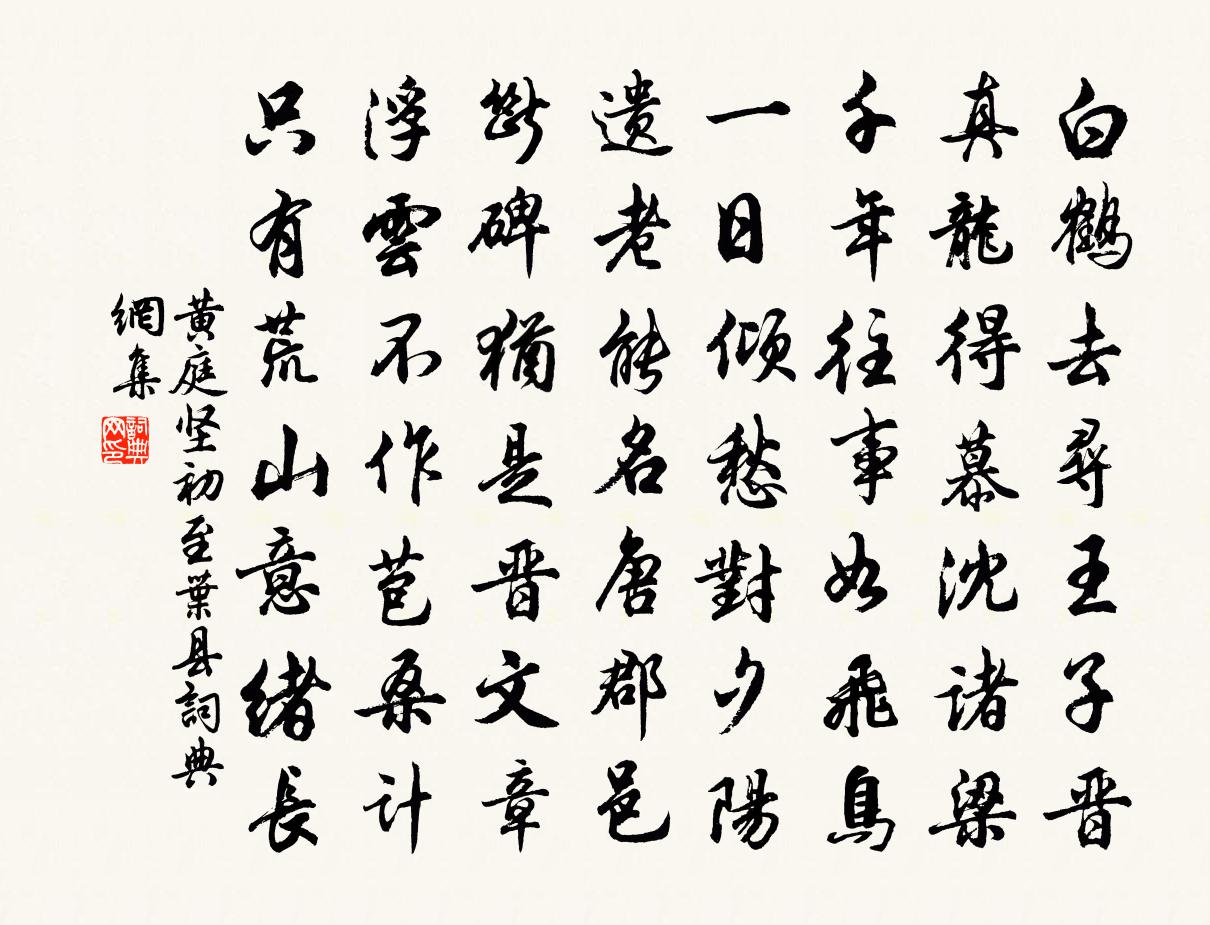 白鶴去尋王子晋
真龍得慕沈诸梁
千年往事如飛鳥
一日傾愁對夕陽
遺老能名唐郡邑
断碑猶是晋文章
浮雲不作苞桑计
只有荒山意緒長
黄庭坚初至葉县詞典
網集
詞典
网印